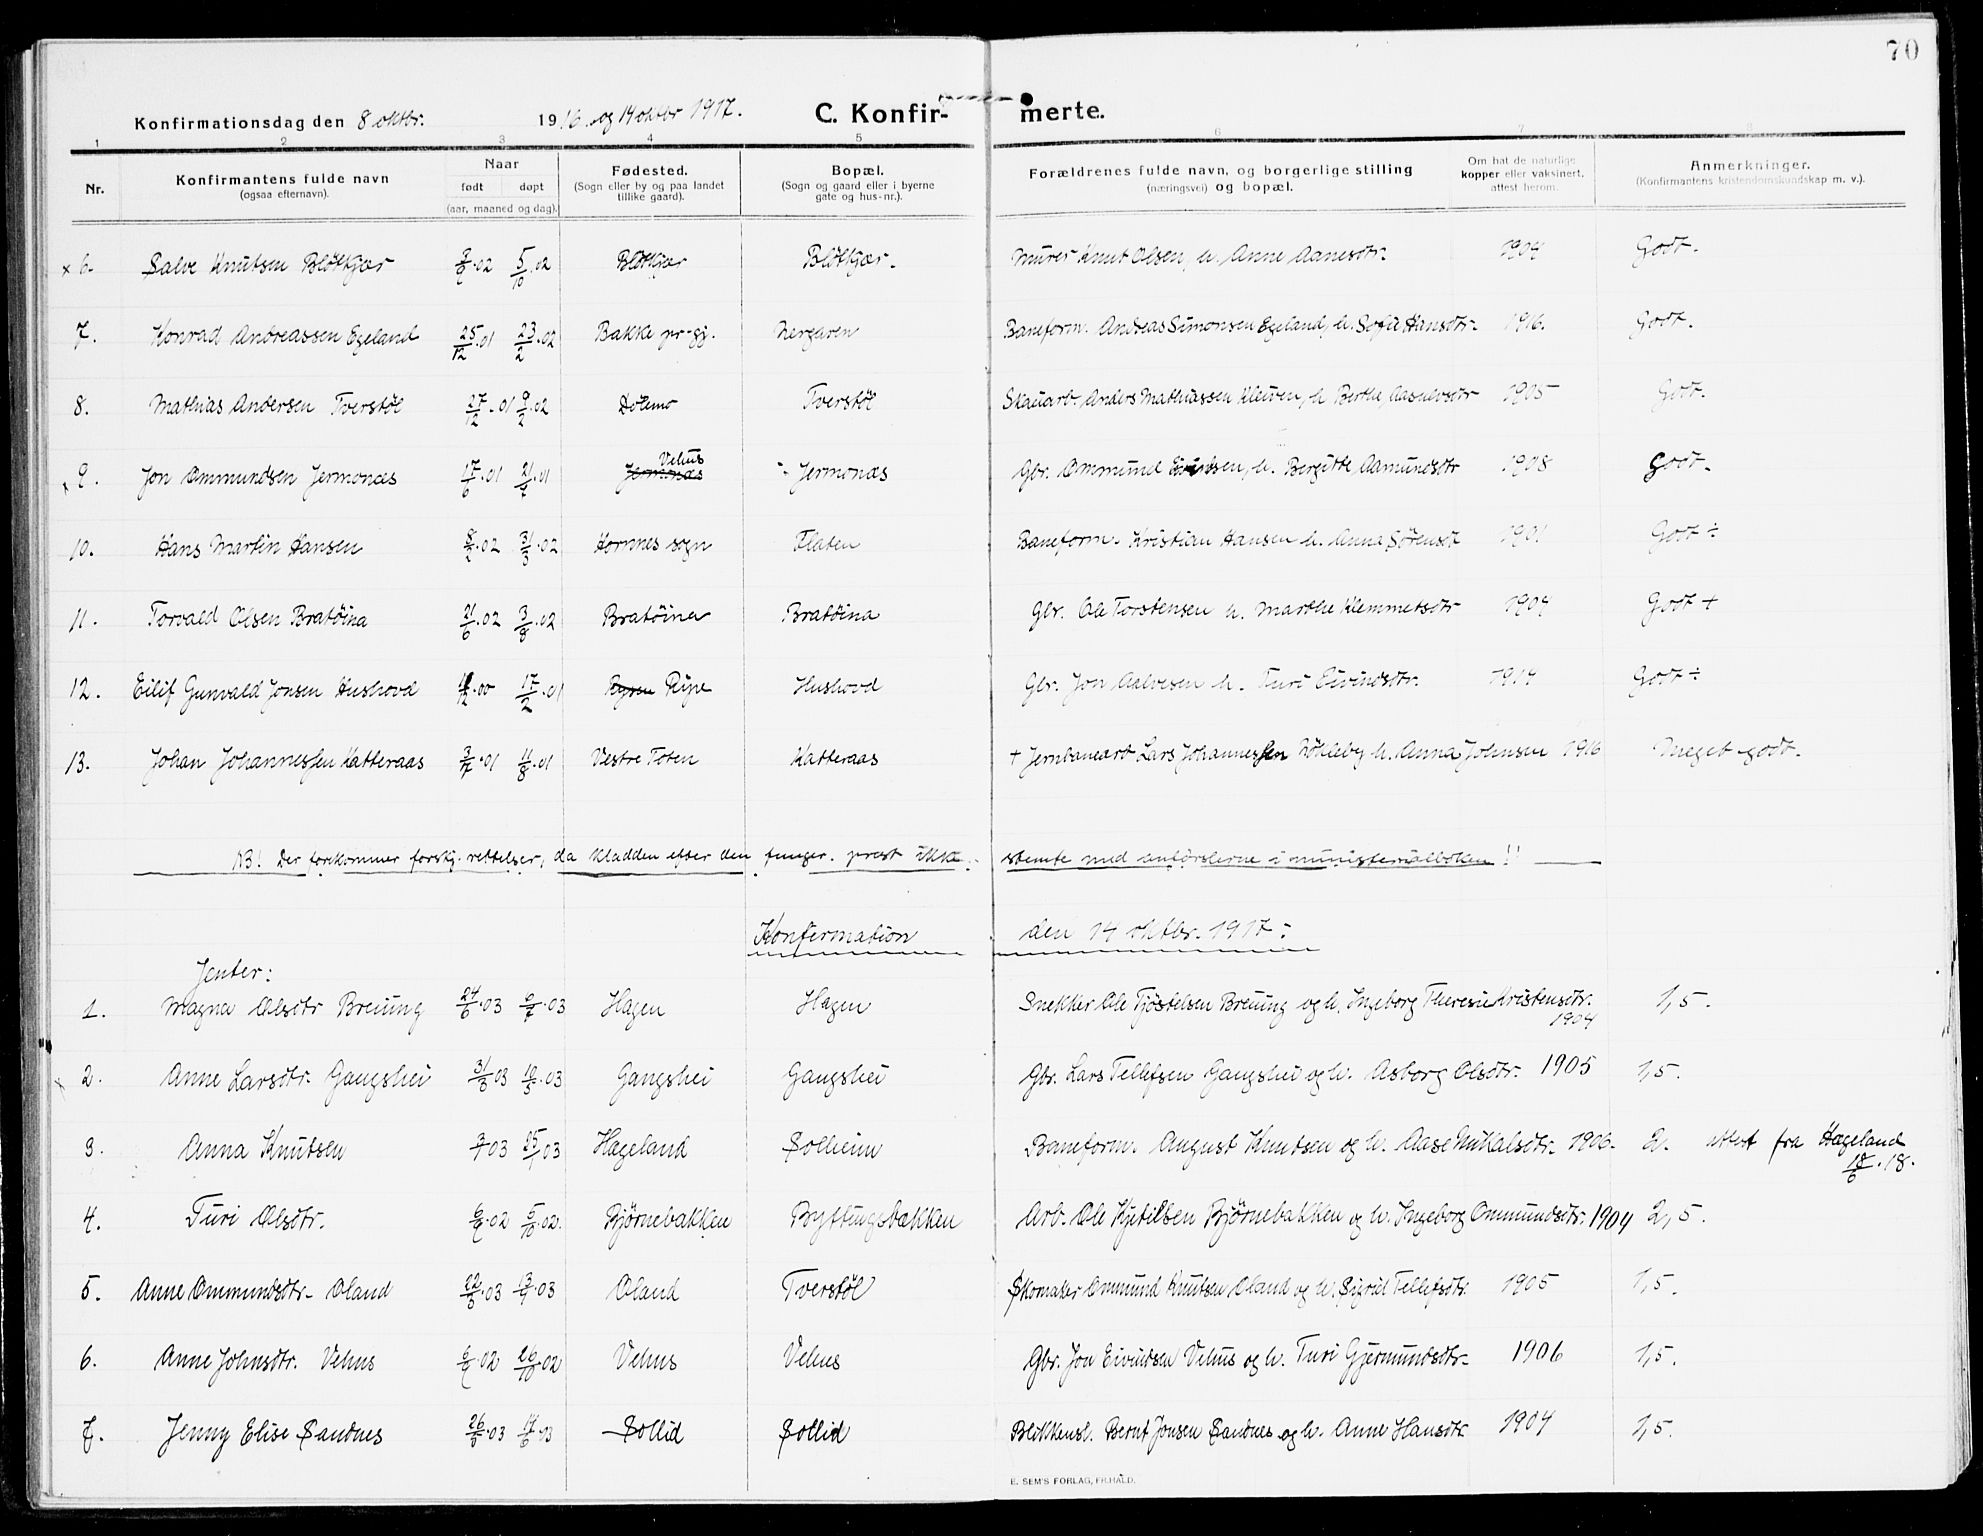 70
Konfirmationsdag den 8 oktbr. 1916 og 14 oktbr 1917. C. Konfir- merte.
1 2 3 4 5 6 7 8
Nr. Konfirmantens fulde navn (ogsaa efternavn). Naar født døpt (aar, maaned og dag). Fødested. (Sogn eller by og paa landet tillike gaard). Bopæl. (Sogn og gaard eller i byerne gate og hus-nr.). Forældrenes fulde navn, og borgerlige stilling (næringsvei) og bopæl. Om hat de naturlige kopper eller vaksinert, attest herom. Anmerkninger. (Konfirmantens kristendomskundskap m. v.).
x 6. Salve Knutsen Bløtkjær 02 5/10.02 Bløtkjær Bløtkjær. Murer Knut Olsen, h. Anne Aanesdtr. 1904 Godt.
7. Konrad Andreassen Egeland 25/12.01 23/2.02 Bakke pr-gj. Nergaren Baneform. Andreas Simonsen Egeland, h. Sofie Hansdtr. 1916. Godt.
8. Mathias Andersen Tverstøl 27/12.01 9/2.02 Dølemo Tverstøl Skauarb. Anders Mathiassen Kleiven, h Berthe Aasnevsdtr 1905 Godt.
x 9. Jon Ommundsen Jermonæs 17/6.01 21/7.01 Jermonæs Vehus Jermonæs Gbr. Ommund Eivindsen, h. Bergitte Aamundsdtr 1908 Godt.
10. Hans Martin Hansen 8/2.02 31/3.02 Hornnes sogn Flaten Baneform. Kristian Hansen h. Anna Sørensdt 1901 Godt ÷
11. Torvald Olsen Bratøina 21/6.02 3/8.02 Bratøina Bratøina Gbr. Ole Torstensen h. Marthe Klemmetsdtr 1904 Godt +
12. Eilif Gunvald Jonsen Hushovd 12.00 17/2.01 Rype Hushovd Gbr. Jon Aalvesen h. Turi Eivindsdtr. 1914 Godt ÷
13. Johan Johannessen Katteraas 3/7.01 11/8.01 Vestre Toten Katteraas + Jernbanearb Lars Johannessen h. Anna Johnsen 1916 Meget godt.
NB! Der forekommer forskj. rettelser, da kladden efter den funger. prest ikke stemte med anførslerne i ministerialboken!!
Konfirmation den 14 oktbr. 1917:
Jenter:
1. Magna Olsdtr Breiung 24/6.03 03 Hagen Hagen Snekker Ole Tjøstelsen Breiung og h. Ingeborg Theresie Kristensdtr. 1904 1,5.
x 2. Anne Larsdtr. Gangshei 31/3 03 10/5.03 Gangshei Gangshei Gbr. Lars Tellefsen Gangshei og h. Asborg Olsdtr. 1905 1,5.
3. Anna Knutsen 03 25/ 03 Hægeland Solheim Baneform. August Knutsen og h. Aase Nikalsdtr. 1906. 2. attest fra Hægeland 18/6.18.
4. Turi Olsdtr. 02 5/10.02. Bjørnebakken Byttingsbakken Arb. Ole Kjetilsen Bjørnebakken og h. Ingeborg Ommundsdtr. 1904 2,5.
5. Anne Ommundsdtr. Øland 22/3.03 03 Øland Tverstøl Skomaker Ommund Knutsen Øland og h. Sigrid Tellefsdtr. 1905 1,5.
6. Anne Johnsdtr. Vehus 02 26/10.02 Vehus Vehus Gbr. Jon Eivindsen Vehus og h. Turi Gjermundsdtr 1906 1,5.
7. Jenny Elise Sandnes 26/3.03 14/6.03 Sollid Sollid Blikkensl. Bernt Jonsen Sandnes og h. Anne Hansdtr 1904 1,5.
E. SEM'S FORLAG, FR.HALD.